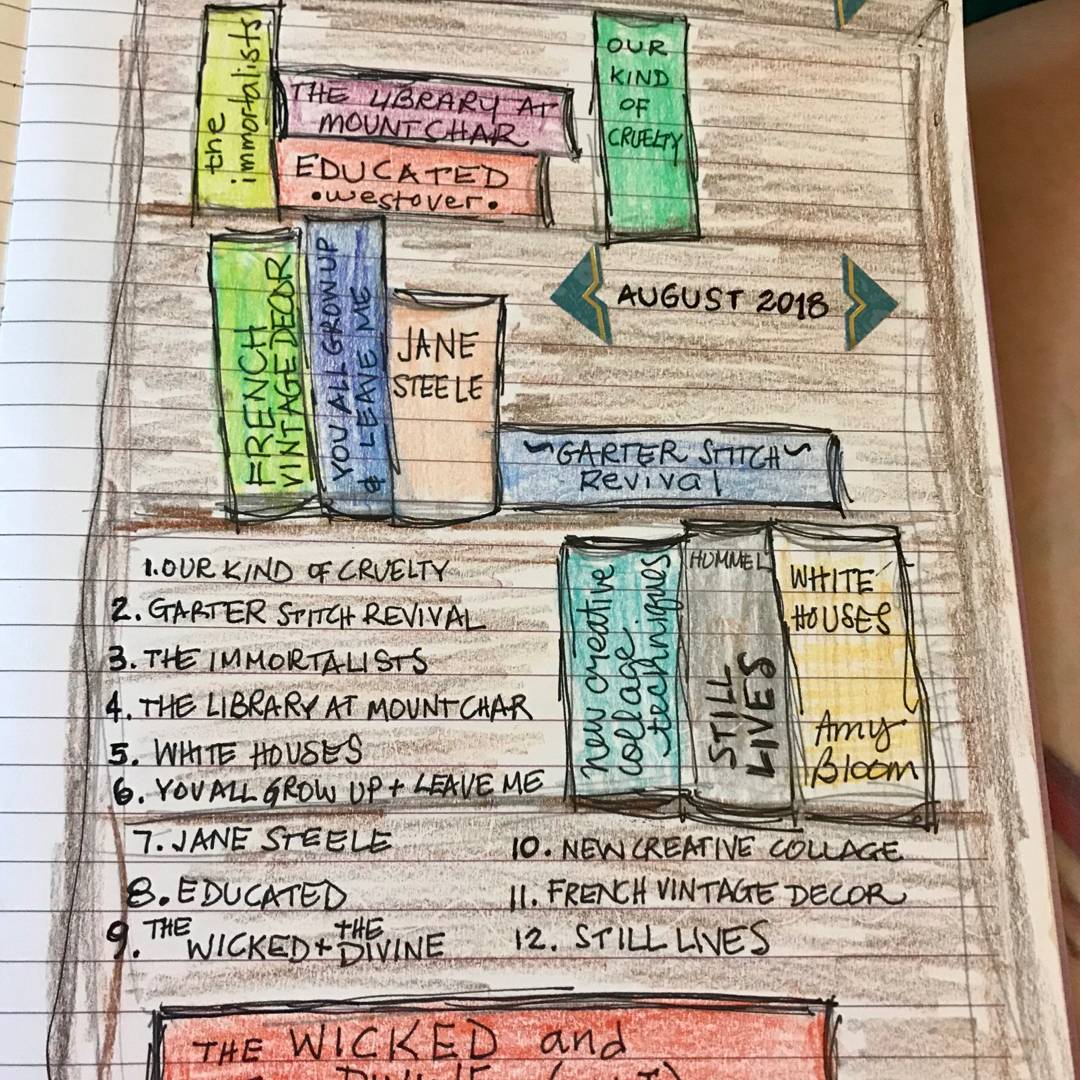 the
immortalists
THE LIBRARY AT
MOUNT CHAR
EDUCATED
•westover•
OUR
KIND
OF
CRUELTY
FRENCH
VINTAGE DECOR
YOU ALL GROW UP
& LEAVE ME
JANE
STEELE
AUGUST 2018
~GARTER STITCH~
Revival
new creative
collage
techniques
HUMMEL
STILL
LIVES
WHITE
HOUSES
Amy
Bloom
1. OUR KIND OF CRUELTY
2. GARTER STITCH REVIVAL
3. THE IMMORTALISTS
4. THE LIBRARY AT MOUNT CHAR
5. WHITE HOUSES
6. YOU ALL GROW UP + LEAVE ME
7. JANE STEELE
8. EDUCATED
9. THE WICKED + THE DIVINE
10. NEW CREATIVE COLLAGE
11. FRENCH VINTAGE DECOR
12. STILL LIVES
THE WICKED and